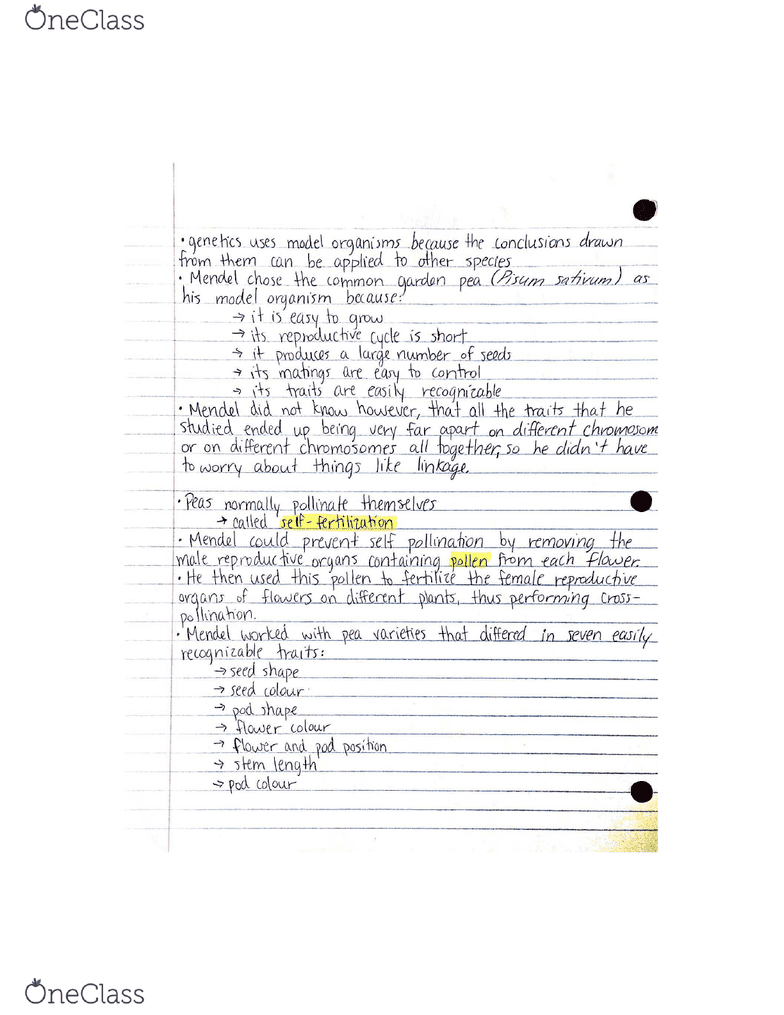 OneClass
• genetics uses model organisms because the conclusions drawn
from them can be applied to other species
• Mendel chose the common garden pea (Pisum sativum) as
his model organism because:
→ it is easy to grow
→ its reproductive cycle is short
→ it produces a large number of seeds
→ its matings are easy to control
→ its traits are easily recognizable
• Mendel did not know however, that all the traits that he
studied ended up being very far apart on different chromosom
or on different chromosomes all together, so he didn't have
to worry about things like linkage.
• Peas normally pollinate themselves
→ called self-fertilization
• Mendel could prevent self pollination by removing the
male reproductive organs containing pollen from each flower.
• He then used this pollen to fertilize the female reproductive
organs of flowers on different plants, thus performing cross-
pollination.
• Mendel worked with pea varieties that differed in seven easily
recognizable traits:
→ seed shape
→ seed colour
→ pod shape
→ flower colour
→ flower and pod position
→ stem length
→ pod colour
OneClass